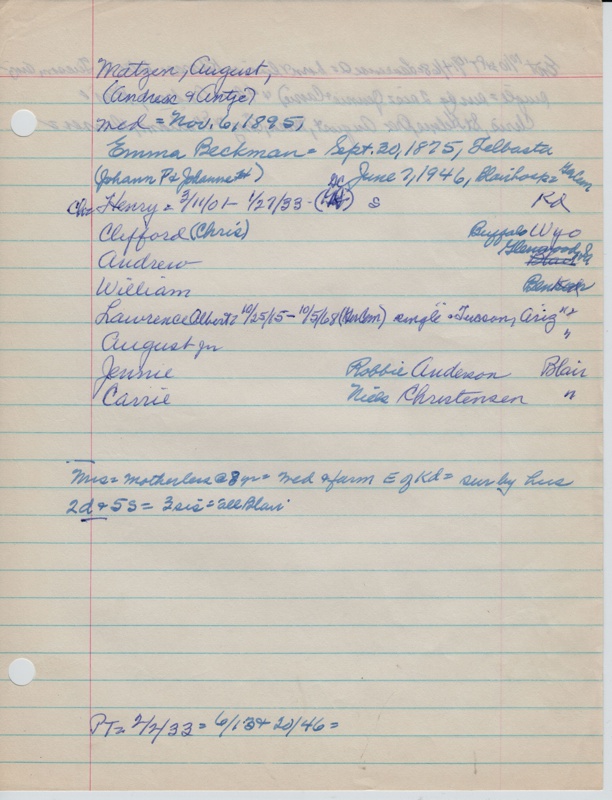 Matzen, August,
(Andreas & Antje)
med = Nov. 6, 1895,
Emma Beckman = Sept. 20, 1875, Felbasta
(Johann P & Johannett) DC June 7, 1946, Blair
Henry = 3/11/01 - 1/27/33 - S Kd
Clifford (Chris) Buffalo Wyo
Andrew
William
Lawrence Albert = 10/25/15 - 10/5/68 (Harlem) single = Tucson, Ariz
August jr "
Jennie Robbie Anderson Blair
Carrie Niels Christensen "
Mrs = motherless @ 8 yr = med & farm E of Kd = sur by hus
2d & 5s = 3 sis = all Blair
PT = 2/2/33 = 6/13 & 20/46 =